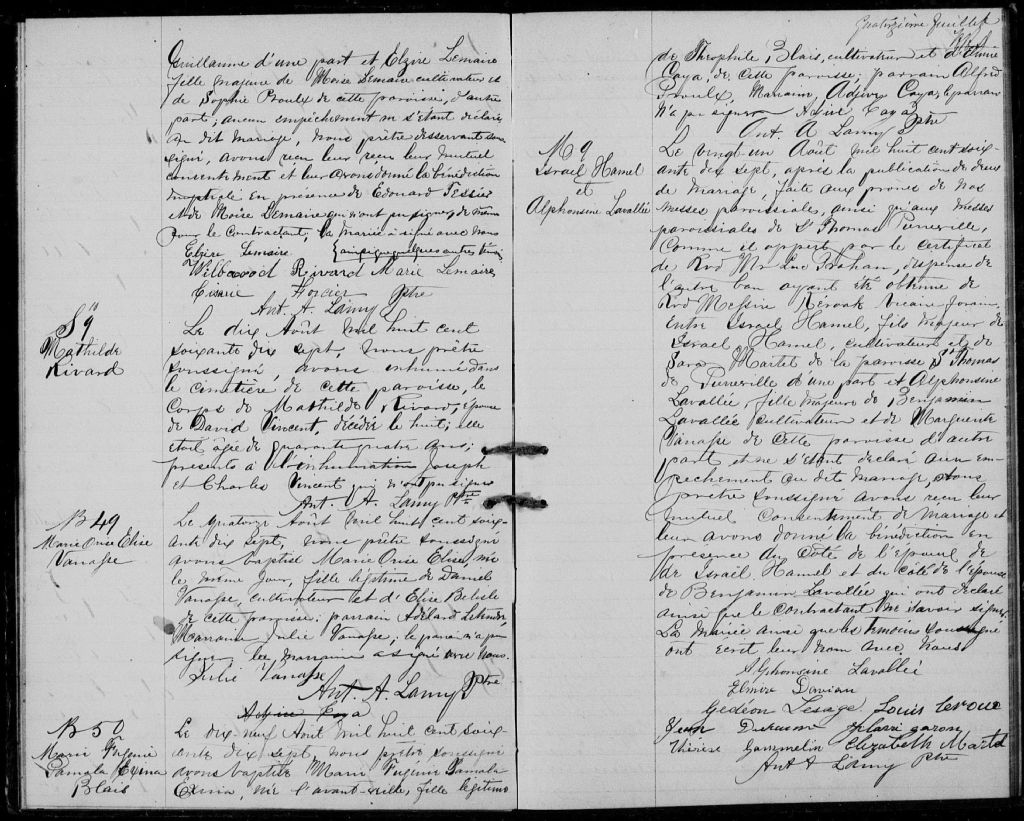 Guillaume d'une part et Elzire Lemaire
fille majeure de Moïse Lemaire cultivateur et
de Sophie Proulx de cette paroisse, d'autre
part; aucun empêchement ne s'étant déclaré
au dit mariage, nous prêtre desservant sous-
signé, avons reçu leur mutuel
consentement et leur avons donné la bénédiction
nuptiale en présence de Edouard Tessier
et de Moïse Lemaire qui n'ont pu signer, de même
pour le contractant, la mariée a signé avec nous
Elzire Lemaire ainsi que quelques autres témoins
Rivard Marie Lemaire
Forcier
Ant. A. Lamy Ptre
S 9
Mathilde
Rivard
Le dix Août mil huit cent
soixante dix sept, nous prêtre
soussigné, avons inhumé dans
le cimetière de cette paroisse, le
corps de Mathilde Rivard, épouse
de David Vincent, décédée le huit; elle
était âgée de quarante quatre ans;
présents à l'inhumation Joseph
et Charles Vincent qui n'ont pu signer
Ant. A. Lamy Ptre
B 49
Marie Orise Elise
Vanasse
Le quatorze Août mil huit cent soix-
ante dix sept, nous prêtre soussigné
avons baptisé Marie Orise Elise, née
le même jour, fille légitime de Daniel
Vanasse, cultivateur et d'Elise Belisle
de cette paroisse; parrain Adélard
Marraine Julie Vanasse; le parrain n'a pu
signer, la marraine a signé avec nous.
Julie Vanasse
Ant. A. Lamy Ptre
B 50
Marie
Pamala Exina
Blais
Le dix neuf Août mil huit cent soix-
ante dix sept, nous prêtre soussigné
avons baptisé Marie Pamala
Exina, née l'avant-veille, fille légitime
Quatorzième feuillet
de Théophile Blais, cultivateur et d'
Caya, de cette paroisse; parrain Alfred
Proulx Marraine, Caya; le parrain
n'a pu signer Caya
Ant. A Lamy Ptre
M 9
Israël Hamel
et
Alphonsine Lavallée
Le vingt-un Août mil huit cent soix-
ante dix sept, après la publication de deux
de mariage, faite aux prones de nos
messes paroissiales, ainsi qu'aux messes
paroissiales de St Thomas Pierreville,
comme il appert par le certificat
de Rvd Mr Luc Trahan, dispense de
l'autre ban ayant été obtenue de
Rvd Messire Vicaire Forain
Entre Israël Hamel, fils majeur de
Israël Hamel, cultivateur et de
Martel de la paroisse St Thomas
de Pierreville d'une part et Alphonsine
Lavallée, fille majeure de Benjamin
Lavallée cultivateur et de Marguerite
Vanasse de cette paroisse d'autre
part et ne s'étant déclaré aucun em-
pêchement au dit mariage nous
prêtre soussigné avons reçu leur
mutuel consentement de mariage et
leur avons donné la bénédiction en
présence du côté de l'époux de
de Israël Hamel et du côté de l'épouse
de Benjamin Lavallée qui ont déclaré
ainsi que le contractant ne savoir signer
La mariée ainsi que les témoins soussignés
ont écrit leur nom avec nous
Alphonsine Lavallée
Gédéon Lesage Louis
Thérèse Gammelin Elizabeth Martel
Ant A Lamy Ptre